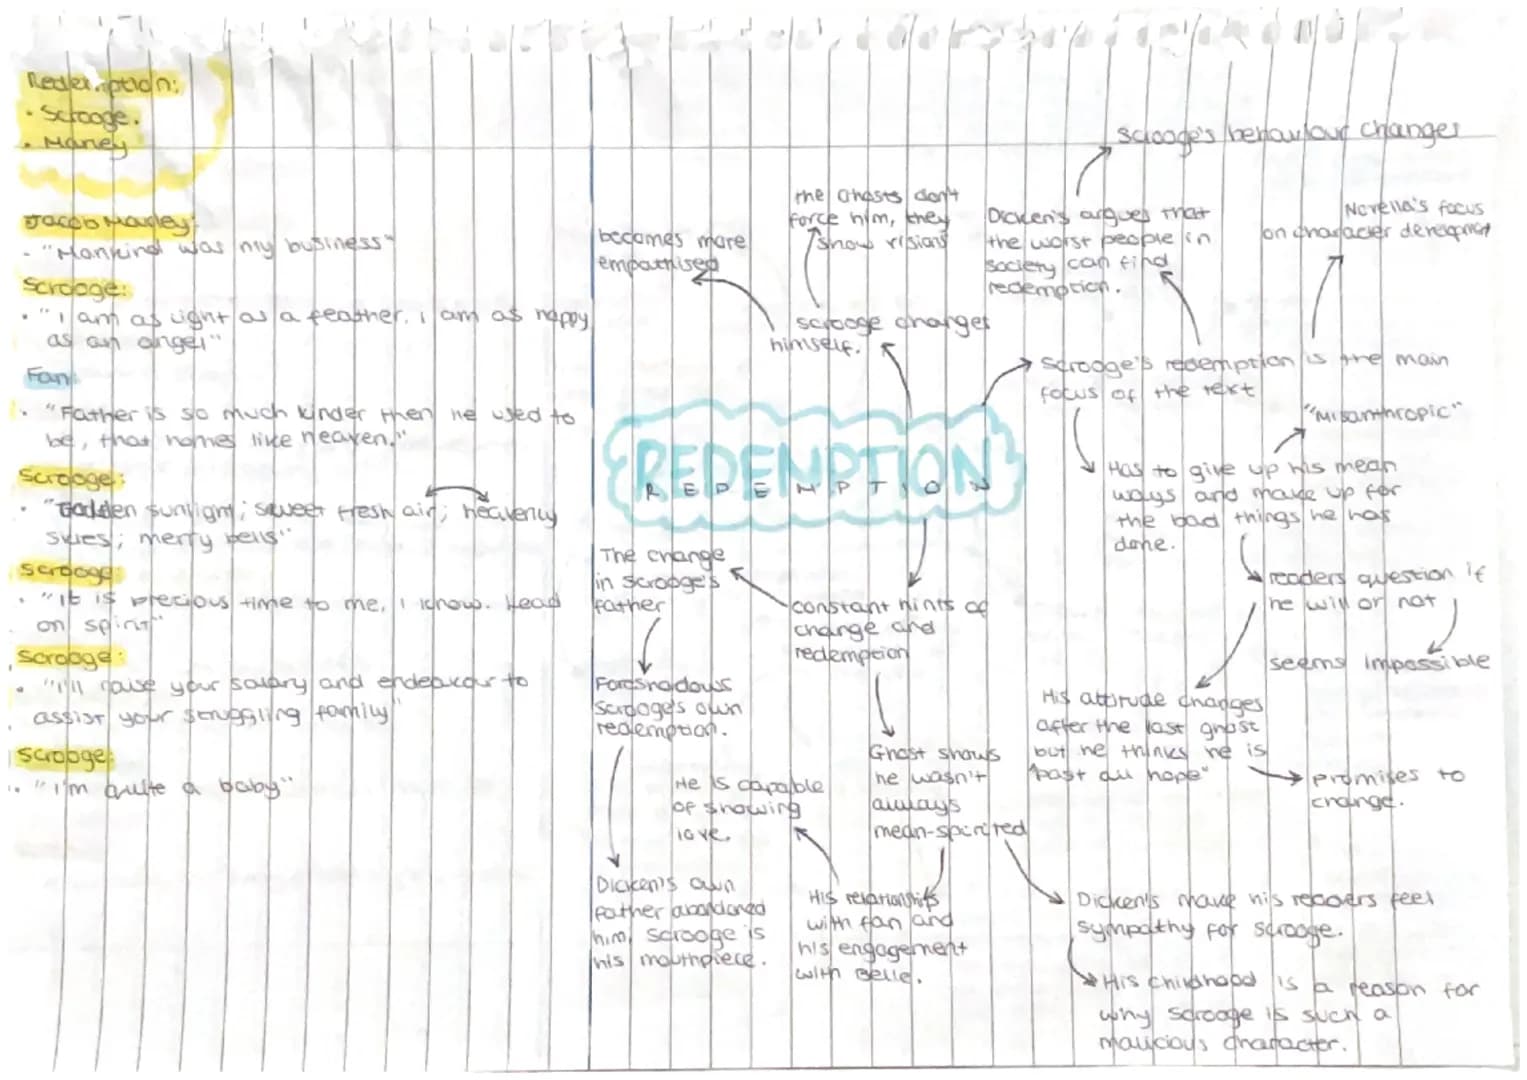 Redemption:
• Scrooge.
• Marley
Jacob Marley:
- "Mankind was my business"
Scrooge:
• "I am as light as a feather. I am as happy
as an angel"
Fan:
• "Father is so much kinder then he used to
be, that homes like heaven."
Scrooge:
• "Golden sunlight; sweet fresh air; heavenly
skies; merry bells"
Scrooge:
• "It is precious time to me, I know. Lead
on spirit"
Scrooge:
• "I'll raise your salary and endeavour to
assist your struggling family"
Scrooge:
• "I'm quite a baby"
becomes more
empathised
the Ghosts don't
force him, they
show visions
scrooge changes
himself.
Dicken's argues that
the worst people in
society can find
redemption.
Scrooge's behaviour changes
Novella's focus
on character development
Scrooge's redemption is the main
focus of the text
"Misanthropic"
REDEMPTION
REDEMPTION
Has to give up his mean
ways and make up for
the bad things he has
done.
readers question if
he will or not
seems impossible
His attitude changes
after the last ghost
but he thinks he is
"past all hope"
promises to
change.
The change
in scrooge's
father
constant hints of
change and
redemption
Foreshadows
Scrooge's own
redemption.
Ghost shows
he wasn't
always
mean-spirited
He is capable
of showing
love.
Dicken's own
father abandoned
him, scrooge is
his mouthpiece.
His relationships
with fan and
his engagement
with Belle.
Dicken's make his readers feel
sympathy for scrooge.
His childhood is a reason for
why scrooge is such a
malicious character.